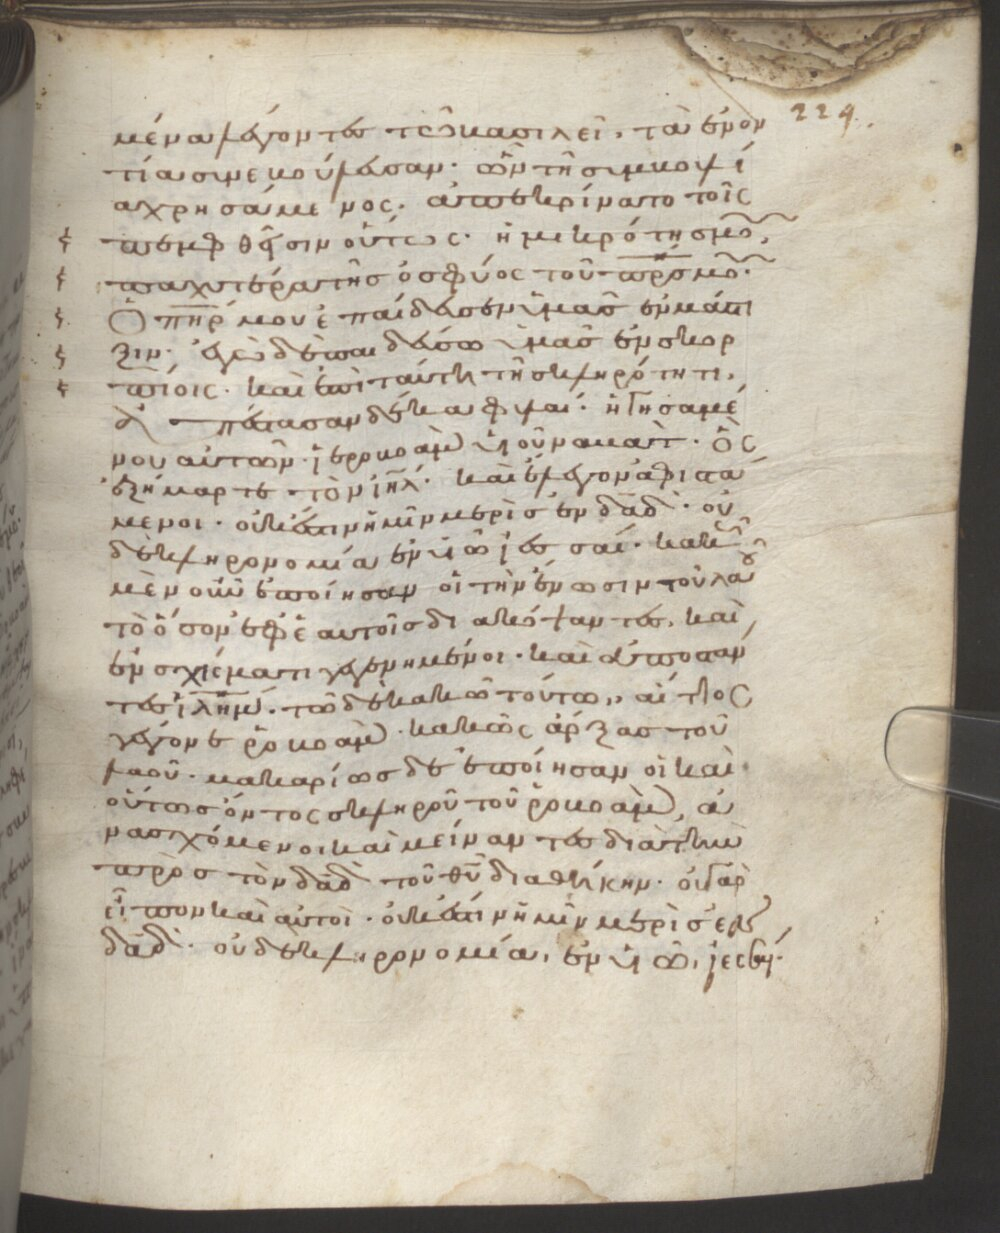 224.
μένα λέγοντες τῶ βασιλεῖ, τὰ ἐναν
τία συνεβούλευσαν· ὧν τῆ συμβουλί
α χρησάμενος· ἀπεκρίνατο τοῖς
πεμφθεῖσιν οὕτως· ἡ μικρότης μου,
παχυτέρα τῆς ὀσφύος τοῦ πρς μου·
Ὁ πηρ μου ἐπαίδευσεν ὑμᾶς ἐν μάστι
ξιν· ἐγὼ δὲ παιδεύσω ὑμᾶς ἐν σκορ
πίοις· καὶ ἐπὶ ταύτη τῆ σκληρότητι,
ἀπέστασαν δέκα φυλαί· ἡγησαμέ
νου αὐτῶν ἱεροβοὰμ υἱοῦ ναβάτ· ὃς
ἐξήμαρτε τὸν ιηλ· καὶ ἔλεγον ἀφιστά
μενοι· οὐκ ἔστιν ἡμῖν μερὶς ἐν δαδ· οὐ
δὲ κληρονομία ἐν υἱῶ ἰεσσαί· κακῶς
μὲν οὖν ἐποίησαν οἱ τὴν ἕνωσιν τοῦ λαοῦ
τὸ ὅσον ἐφ' ἑαυτοῖς διακόψαντες, καὶ
ἐν σχίσματι γεγενημένοι· καὶ ἀποστάν
τες ιλημ· τῶ δὲ κακῶ τούτω, αἴτιος
γέγονε ῥοβοὰμ· κακῶς ἄρξας τοῦ
λαοῦ· μακαρίως δὲ ἐποίησαν οἱ καὶ
οὕτως ὄντος σκληροῦ τοῦ ῥοβοὰμ, ἀ
νασχόμενοι καὶ μείναντες διὰ τὴν
πρὸς τὸν δαδ τοῦ θυ διαθήκην· οὐ γὰρ
εἶπον καὶ αὐτοὶ· οὐκ ἔστιν ἡμῖν μερὶς ἐν
δαδ· οὐδὲ κληρονομία, ἐν υἱῶ ἰεσσαί·